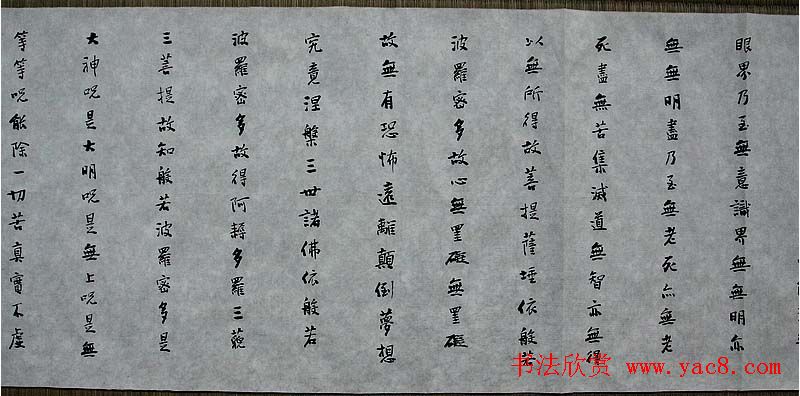 眼界乃至無意識界無無明亦
無無明盡乃至無老死亦無老
死盡無苦集滅道無智亦無得
以無所得故菩提薩埵依般若
波羅密多故心無罣礙無罣礙
故無有恐怖遠離顛倒夢想
究竟涅槃三世諸佛依般若
波羅密多故得阿耨多羅三藐
三菩提故知般若波羅密多是
大神咒是大明咒是無上咒是無
等等咒能除一切苦真實不虛
书法欣赏 www.yac8.com